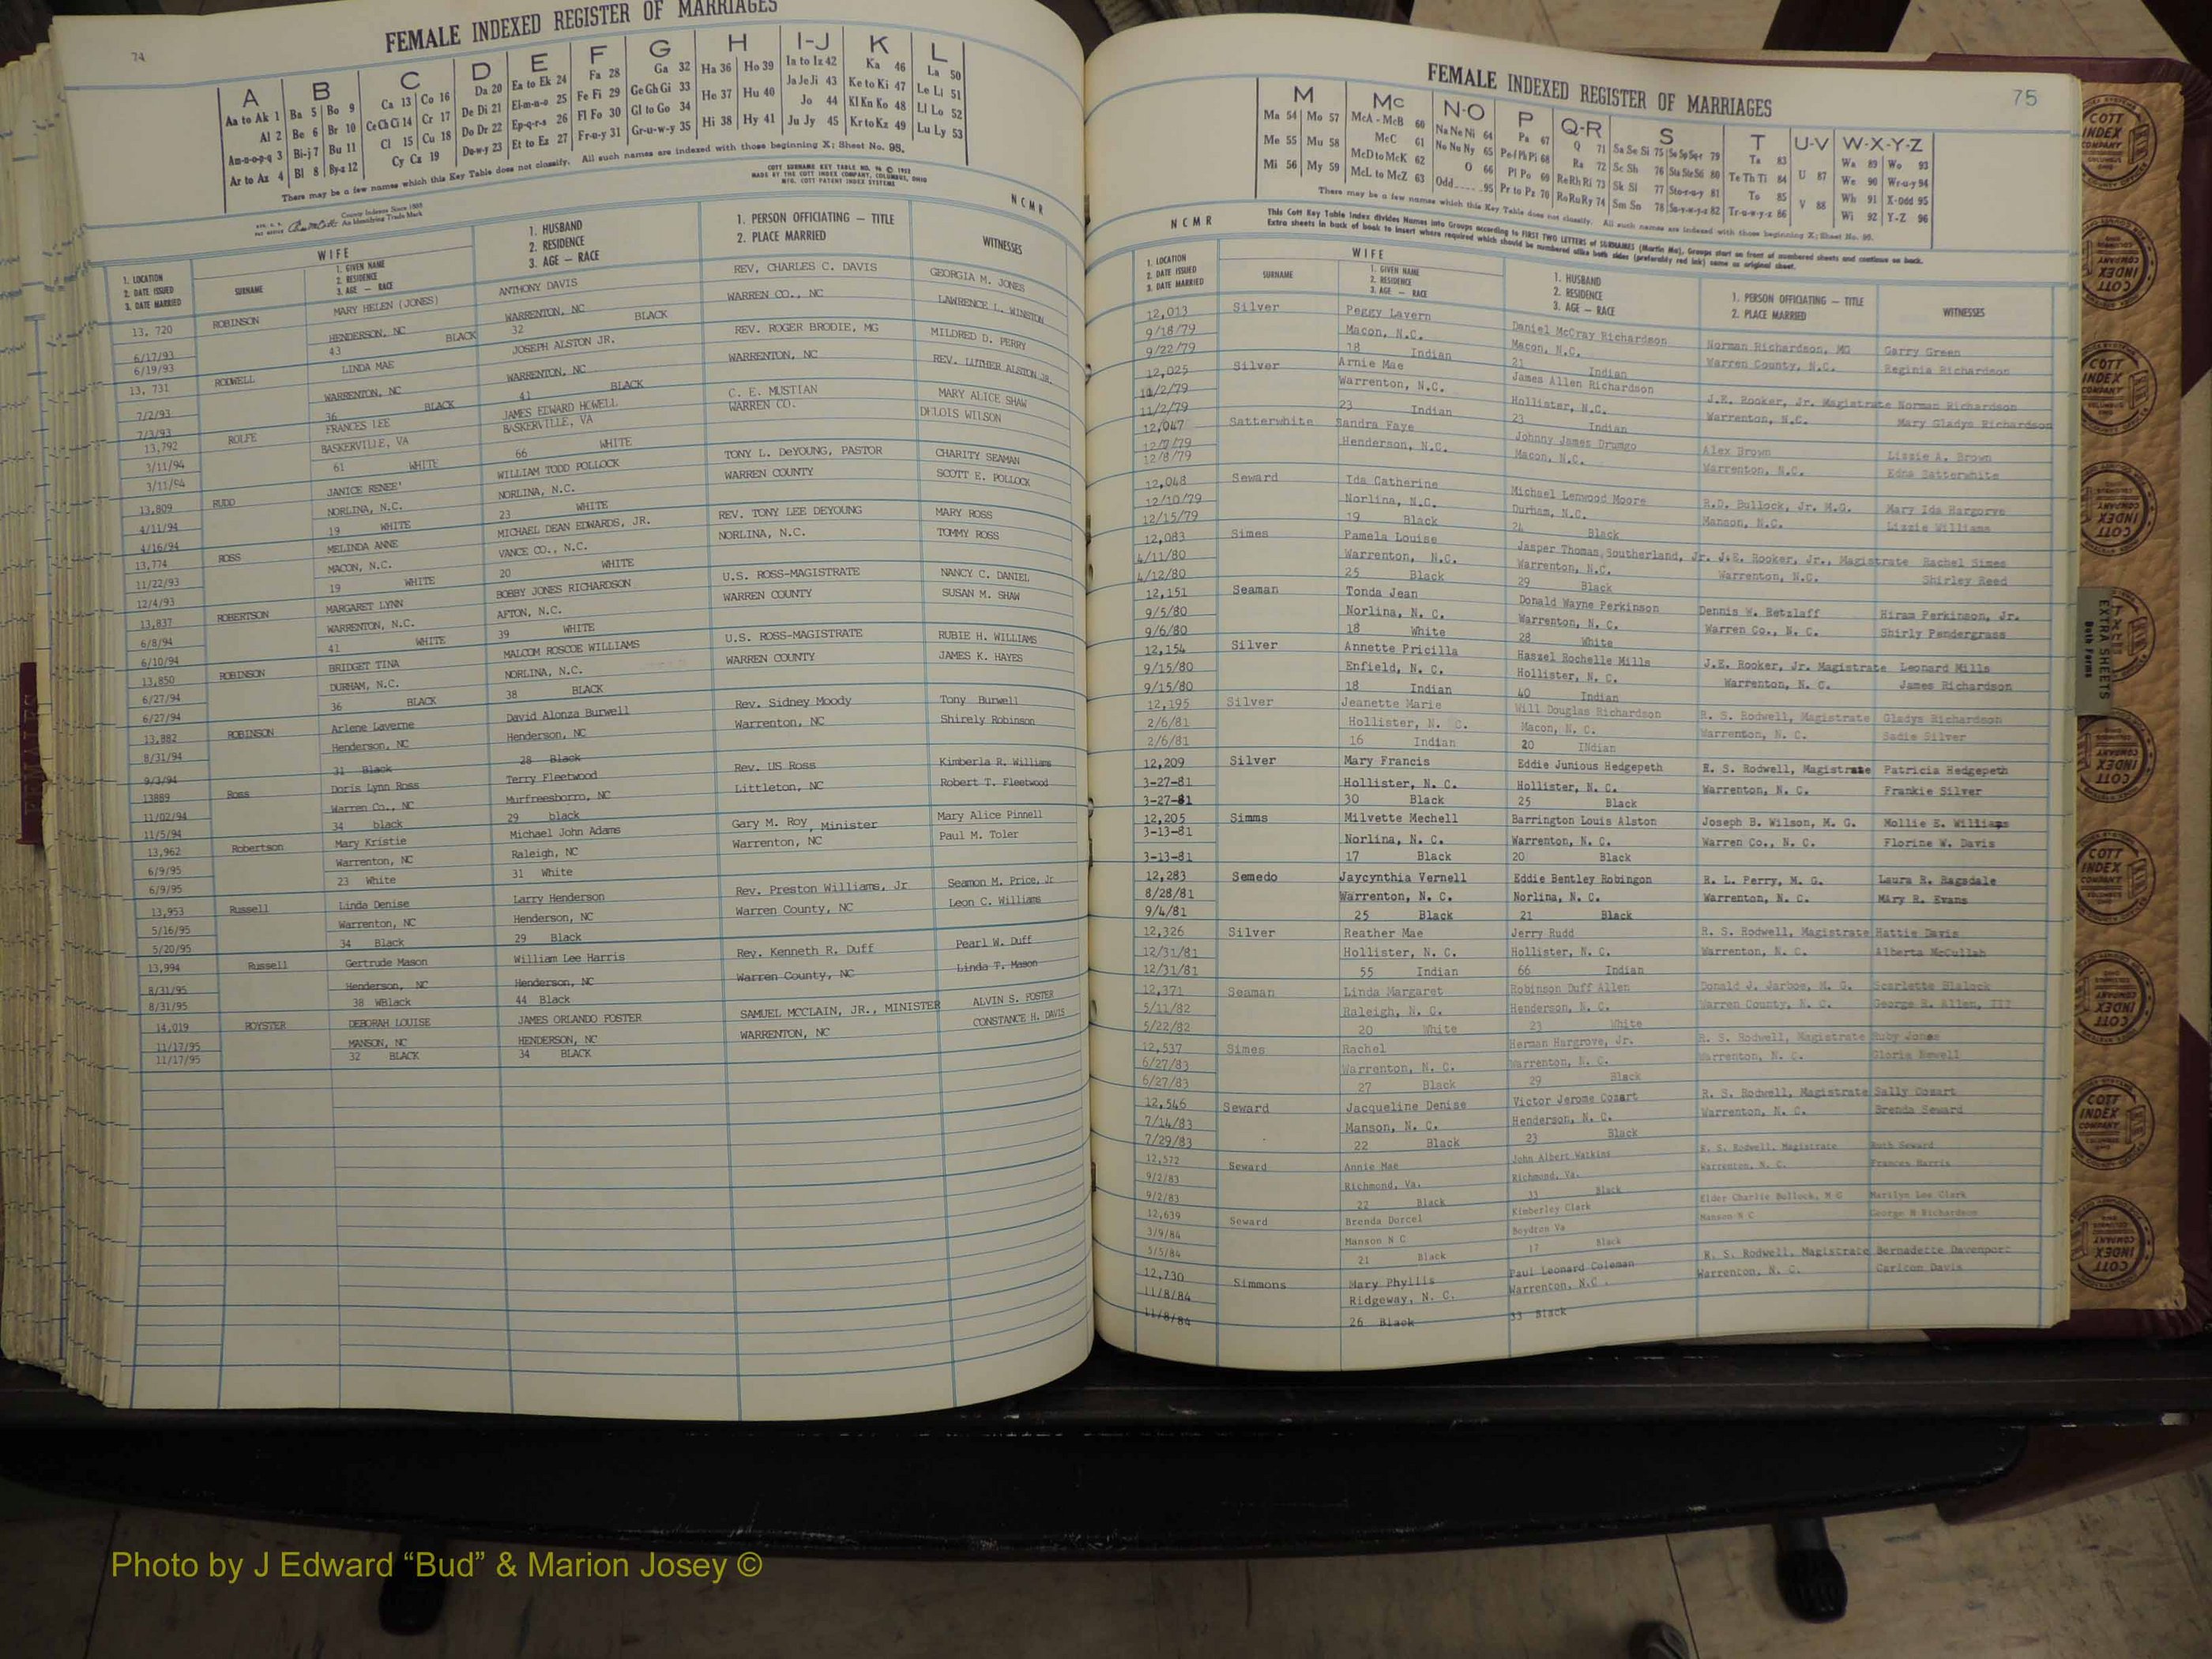 74
FEMALE INDEXED REGISTER OF MARRIAGES
A B C D E F G H I-J K L
Aa to Ak 1 Ba 5 Bo 9 Ca 13 Co 16 Da 20 Ea to Ek 24 Fa 28 Ga 32 Ha 36 Ho 39 Ia to Iz 42 Ka 46 La 50
Al 2 Be 6 Br 10 Ce Ch Ci 14 Cr 17 De Di 21 El-m-n-o 25 Fe Fi 29 Ge Gh Gi 33 He 37 Hu 40 Ja Je Ji 43 Ke to Ki 47 Le Li 51
Am-n-o-p-q 3 Bi-j 7 Bu 11 Cl 15 Cu 18 Do Dr 22 Ep-q-r-s 26 Fl Fo 30 Gl to Go 34 Hi 38 Hy 41 Jo 44 Kl Kn Ko 48 Ll Lo 52
Ar to Az 4 Bl 8 By-z 12 Cy Cz 19 Du-w-y 23 Et to Ez 27 Fr-u-y 31 Gr-u-w-y 35 Ju Jy 45 Kr to Kz 49 Lu Ly 53
There may be a few names which this Key Table does not classify. All such names are indexed with those beginning X; Sheet No. 95.
COTT SURNAME KEY TABLE NO. 96 © 1953
MADE BY THE COTT INDEX COMPANY, COLUMBUS, OHIO
MFG. COTT PATENT INDEX SYSTEMS
County Indexes Since 1888
An Identifying Trade Mark
N C M R
1. LOCATION
2. DATE ISSUED
3. DATE MARRIED
WIFE
SURNAME
1. GIVEN NAME
2. RESIDENCE
3. AGE — RACE
1. HUSBAND
2. RESIDENCE
3. AGE — RACE
1. PERSON OFFICIATING — TITLE
2. PLACE MARRIED
WITNESSES
13, 720 ROBINSON MARY HELEN (JONES) ANTHONY DAVIS REV, CHARLES C. DAVIS GEORGIA M. JONES
6/17/93 HENDERSON, NC WARRENTON, NC WARREN CO., NC LAWRENCE L. WINSTON
6/19/93 43 BLACK 32 BLACK
13, 731 RODWELL LINDA MAE JOSEPH ALSTON JR. REV. ROGER BRODIE, MG MILDRED D. PERRY
7/2/93 WARRENTON, NC WARRENTON, NC WARRENTON, NC REV. LUTHER ALSTON JR.
7/3/93 36 BLACK 41 BLACK
13,792 ROLFE FRANCES LEE JAMES EDWARD HOWELL C. E. MUSTIAN MARY ALICE SHAW
3/11/94 BASKERVILLE, VA BASKERVILLE, VA WARREN CO. DELOIS WILSON
3/11/94 61 WHITE 66 WHITE
13,809 RUDD JANICE RENEE' WILLIAM TODD POLLOCK TONY L. DeYOUNG, PASTOR CHARITY SEAMAN
4/11/94 NORLINA, N.C. NORLINA, N.C. WARREN COUNTY SCOTT E. POLLOCK
4/16/94 19 WHITE 23 WHITE
13,774 ROSS MELINDA ANNE MICHAEL DEAN EDWARDS, JR. REV. TONY LEE DEYOUNG MARY ROSS
11/22/93 MACON, N.C. VANCE CO., N.C. NORLINA, N.C. TOMMY ROSS
12/4/93 19 WHITE 20 WHITE
13,837 ROBERTSON MARGARET LYNN BOBBY JONES RICHARDSON U.S. ROSS-MAGISTRATE NANCY C. DANIEL
6/8/94 WARRENTON, N.C. AFTON, N.C. WARREN COUNTY SUSAN M. SHAW
6/10/94 41 WHITE 39 WHITE
13,850 ROBINSON BRIDGET TINA MALCOM ROSCOE WILLIAMS U.S. ROSS-MAGISTRATE RUBIE H. WILLIAMS
6/27/94 DURHAM, N.C. NORLINA, N.C. WARREN COUNTY JAMES K. HAYES
6/27/94 36 BLACK 38 BLACK
13,882 ROBINSON Arlene Laverne David Alonza Burwell Rev. Sidney Moody Tony Burwell
8/31/94 Henderson, NC Henderson, NC Warrenton, NC Shirely Robinson
9/3/94 31 Black 28 Black
13889 Ross Doris Lynn Ross Terry Fleetwood Rev. US Ross Kimberla R. Williams
11/02/94 Warren Co., NC Murfreesboro, NC Littleton, NC Robert T. Fleetwood
11/5/94 34 black 29 black
13,962 Robertson Mary Kristie Michael John Adams Gary M. Roy, Minister Mary Alice Pinnell
6/9/95 Warrenton, NC Raleigh, NC Warrenton, NC Paul M. Toler
6/9/95 23 White 31 White
13,953 Russell Linda Denise Larry Henderson Rev. Preston Williams, Jr Seamon M. Price, Jr
5/16/95 Warrenton, NC Henderson, NC Warren County, NC Leon C. Williams
5/20/95 34 Black 29 Black
13,994 Russell Gertrude Mason William Lee Harris Rev. Kenneth R. Duff Pearl W. Duff
8/31/95 Henderson, NC Henderson, NC Warren County, NC Linda T. Mason
8/31/95 38 WBlack 44 Black
14,019 ROYSTER DEBORAH LOUISE JAMES ORLANDO FOSTER SAMUEL MCCLAIN, JR., MINISTER ALVIN S. FOSTER
11/17/95 MANSON, NC HENDERSON, NC WARRENTON, NC CONSTANCE H. DAVIS
11/17/95 32 BLACK 34 BLACK
FEMALE INDEXED REGISTER OF MARRIAGES
75
M Mc N-O P Q-R S T U-V W-X-Y-Z
Ma 54 Mo 57 McA - McB 60 Na Ne Ni 64 Pa 67 Q 71 Sa Se Si 75 Sp Sq Sr 79 Ta 83 Wa 89 Wo 93
Me 55 Mu 58 McC 61 No Nu Ny 65 Pe-f Ph Pi 68 Ra 72 Sc Sh 76 Sta Ste Sti 80 Te Th Ti 84 U 87 We 90 Wr-u-y 94
Mi 56 My 59 McD to McK 62 O 66 Pl Po 69 Re Rh Ri 73 Sk Sl 77 Sto-r-u-y 81 To 85 V 88 Wh 91 X-Odd 95
McL to McZ 63 Odd 95 Pr to Pz 70 Ro Ru Ry 74 Sm Sn 78 Su-v-w-y-z 82 Tr-u-w-y-z 86 Wi 92 Y-Z 96
There may be a few names which this Key Table does not classify. All such names are indexed with those beginning X; Sheet No. 95.
This Cott Key Table Index divides Names into Groups according to FIRST TWO LETTERS of SURNAMES (Martin Ma). Groups start on front of numbered sheets and continue on back.
Extra sheets in back of book to insert where required which should be numbered alike both sides (preferably red ink) same as original sheet.
N C M R
1. LOCATION
2. DATE ISSUED
3. DATE MARRIED
WIFE
SURNAME
1. GIVEN NAME
2. RESIDENCE
3. AGE — RACE
1. HUSBAND
2. RESIDENCE
3. AGE — RACE
1. PERSON OFFICIATING — TITLE
2. PLACE MARRIED
WITNESSES
12,013 Silver Peggy Lavern Daniel McCray Richardson Norman Richardson, MG Garry Green
9/18/79 Macon, N.C. Macon, N.C. Warren County, N.C. Reginia Richardson
9/22/79 18 Indian 21 Indian
12,025 Silver Arnie Mae James Allen Richardson J.E. Rooker, Jr. Magistrate Norman Richardson
/2/79 Warrenton, N.C. Hollister, N.C. Warrenton, N.C. Mary Gladys Richardson
11/2/79 23 Indian 23 Indian
12,047 Satterwhite Sandra Faye Johnny James Drumgo Alex Brown Lizzie A. Brown
12/7/79 Henderson, N.C. Macon, N.C. Warrenton, N.C. Edna Satterwhite
12/8/79
12,048 Seward Ida Catherine Michael Lenwood Moore R.D. Bullock, Jr. M.G. Mary Ida Hargorve
12/10/79 Norlina, N.C. Durham, N.C. Manson, N.C. Lizzie Williams
12/15/79 19 Black 24 Black
12,083 Simes Pamela Louise Jasper Thomas Southerland, Jr. J.E. Rooker, Jr., Magistrate Rachel Simes
4/11/80 Warrenton, N.C. Warrenton, N.C. Warrenton, N.C. Shirley Reed
4/12/80 25 Black 29 Black
12,151 Seaman Tonda Jean Donald Wayne Perkinson Dennis W. Retzlaff Hiram Perkinson, Jr.
9/5/80 Norlina, N. C. Warrenton, N. C. Warren Co., N. C. Shirly Pendergrass
9/6/80 18 White 28 White
12,154 Silver Annette Pricilla Haszel Rochelle Mills J.E. Rooker, Jr. Magistrate Leonard Mills
9/15/80 Enfield, N. C. Hollister, N. C. Warrenton, N. C. James Richardson
9/15/80 18 Indian 40 Indian
12,195 Silver Jeanette Marie Will Douglas Richardson R. S. Rodwell, Magistrate Gladys Richardson
2/6/81 Hollister, N. C. Macon, N. C. Warrenton, N. C. Sadie Silver
2/6/81 16 Indian 20 INdian
12,209 Silver Mary Francis Eddie Junious Hedgepeth R. S. Rodwell, Magistrate Patricia Hedgepeth
3-27-81 Hollister, N. C. Hollister, N. C. Warrenton, N. C. Frankie Silver
3-27-81 30 Black 25 Black
12,205 Simms Milvette Mechell Barrington Louis Alston Joseph B. Wilson, M. G. Mollie E. Williams
3-13-81 Norlina, N. C. Warrenton, N. C. Warren Co., N. C. Florine W. Davis
3-13-81 17 Black 20 Black
12,283 Semedo Jaycynthia Vernell Eddie Bentley Robingon R. L. Perry, M. G. Laura R. Ragsdale
8/28/81 Warrenton, N. C. Norlina, N. C. Warrenton, N. C. Mary R. Evans
9/4/81 25 Black 21 Black
12,326 Silver Reather Mae Jerry Rudd R. S. Rodwell, Magistrate Hattie Davis
12/31/81 Hollister, N. C. Hollister, N. C. Warrenton, N. C. Alberta McCullah
12/31/81 55 Indian 66 Indian
12,371 Seaman Linda Margaret Robinson Duff Allen Donald J. Jarboe, M. G. Scarlette Blalock
5/11/82 Raleigh, N. C. Henderson, N. C. Warren County, N. C. George R. Allen, III
5/22/82 20 White 23 White
12,537 Simes Rachel Herman Hargrove, Jr. R. S. Rodwell, Magistrate Ruby Jones
6/27/83 Warrenton, N. C. Warrenton, N. C. Warrenton, N. C. Gloria Newell
6/27/83 27 Black 29 Black
12,546 Seward Jacqueline Denise Victor Jerome Cozart R. S. Rodwell, Magistrate Sally Cozart
7/14/83 Manson, N. C. Henderson, N. C. Warrenton, N. C. Brenda Seward
7/29/83 22 Black 23 Black
12,572 Seward Annie Mae John Albert Watkins R. S. Rodwell, Magistrate Ruth Seward
9/2/83 Richmond, Va. Richmond, Va. Warrenton, N. C. Frances Harris
9/2/83 22 Black 33 Black
12,639 Seward Brenda Dorcel Kimberley Clark Elder Charlie Bullock, M G Marilyn Lee Clark
3/9/84 Manson N C Boydton Va Manson N C George N Richardson
5/5/84 21 Black 17 Black
12,730 Simmons Mary Phyllis Paul Leonard Coleman R. S. Rodwell, Magistrate Bernadette Davenport
11/8/84 Ridgeway, N. C. Warrenton, N.C. Warrenton, N. C. Carlton Davis
11/8/84 26 Black 33 Black
EXTRA SHEETS
Both Forms
COTT INDEX COMPANY
Photo by J Edward “Bud” & Marion Josey ©